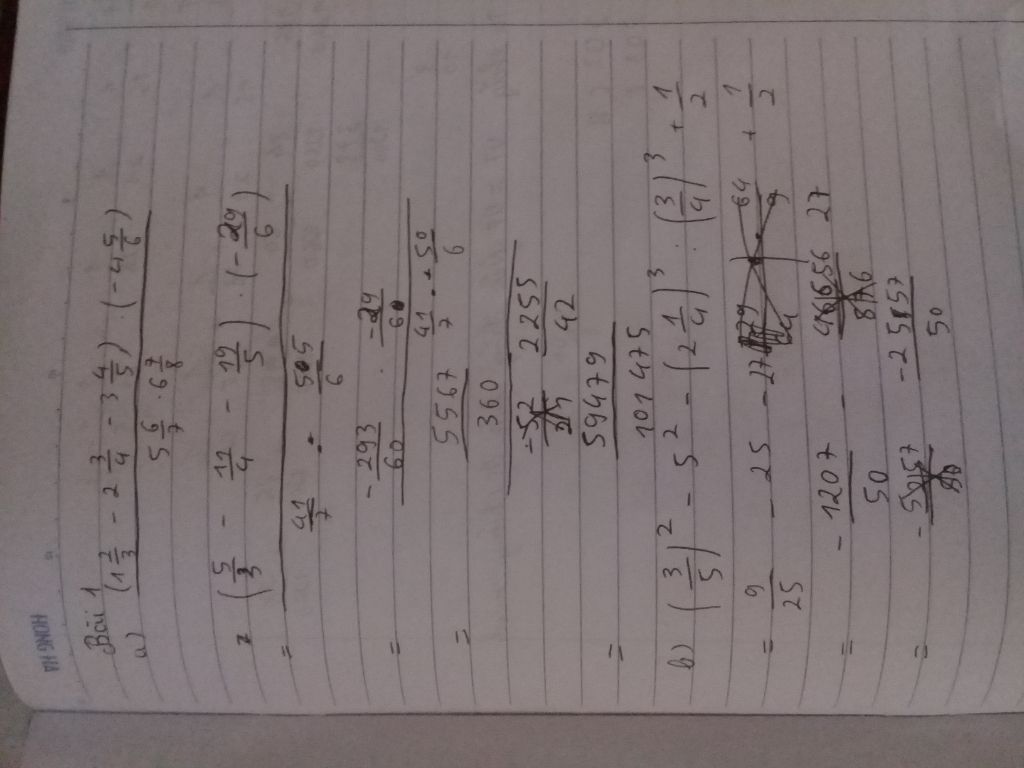 HONG HA
Bài 1
a) (1 2/3 - 2 3/4 - 3 4/5) . (-4 5/6)
5 6/7 . 6 7/8
= (5/3 - 11/4 - 19/5) . (-29/6)
= 41/7 .
= -293/60 . -29/6
41/7 . 50/6
= 5567
360
2255
42
= 59479
101475
b) (3/5)² - 5² - (2 1/4)³ : (3/4)³ + 1/2
= 9/25 - 25 - 27 + 1/2
= - 1207/50 27
= -2557
50